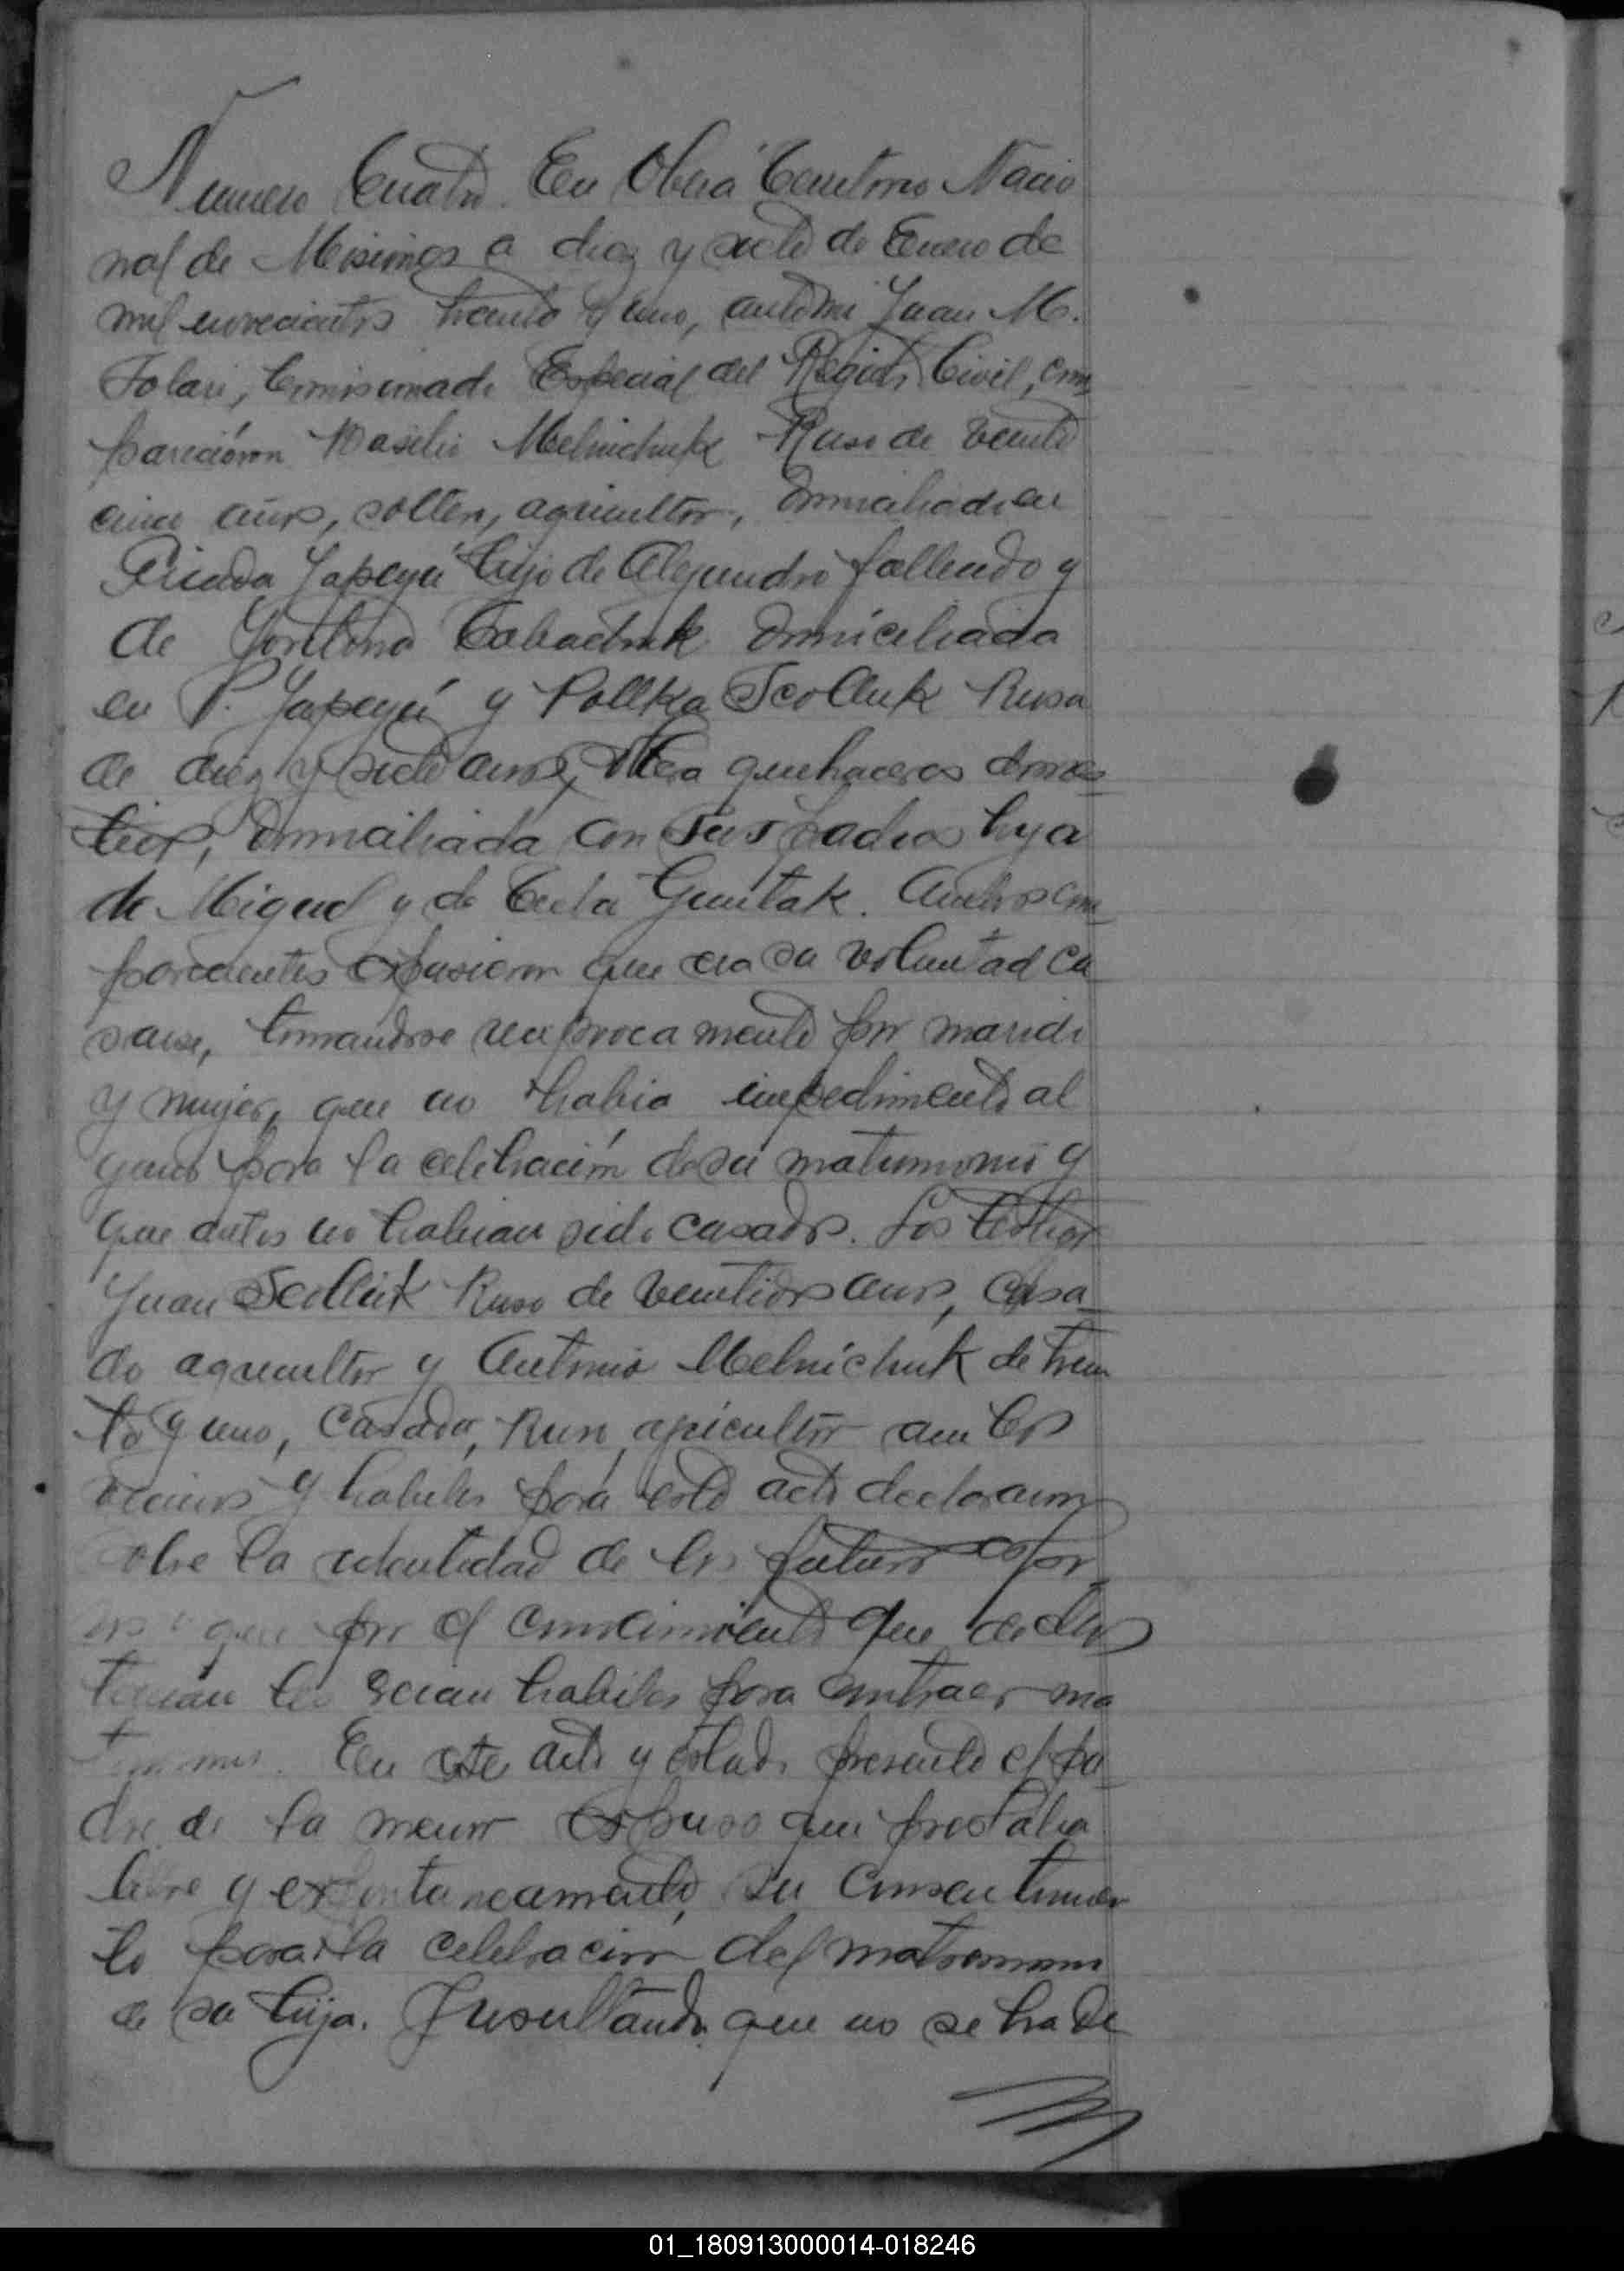 Numero Cuatro. En Oberá Territorio Nacio
nal de Misiones a diez y siete de Enero de
mil novecientos treinta y uno, ante mi Juan M.
Solari, Comisionado Especial del Registro Civil, com
parecieron Basilio Melnichuk Ruso de veinti
cinco años, soltero, agricultor, domiciliado en
Picada Yapeyú hijo de Alejandro fallecido y
de domiciliada
en P. Yapeyú y Polkka Scolluk Rusa
de diez y siete años, quehaceres domes
ticos, domiciliada con sus padres hija
de Miguel y de Guitak. Ambos com
parecientes expusieron que era su voluntad ca
sarse, tomandose reciprocamente por marido
y mujer, que no habia impedimento al
guno para la celebración de su matrimonio y
que antes no habian sido casados. Los testigos
Juan Scolluk Ruso de veintidos años, casa
do agricultor y Antonio Melnichuk de trein
ta y uno, casado, Ruso, agricultor ambos
vecinos y habiles para este acto declararon
sobre la identidad de los futuros espo
sos y que por el conocimiento que de ellos
tenian los creian habiles para contraer ma
trimonio. En este acto y estado presente el pa
dre de la menor expuso que prestaba
libre y expontaneamente su consentimien
to para la celebracion del matrimonio
de su hija. Resultando que no se ha de
01_180913000014-018246